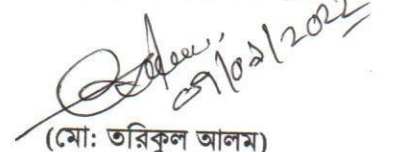 ০৭/০৯/২০২২
(মো: তরিকুল আলম)